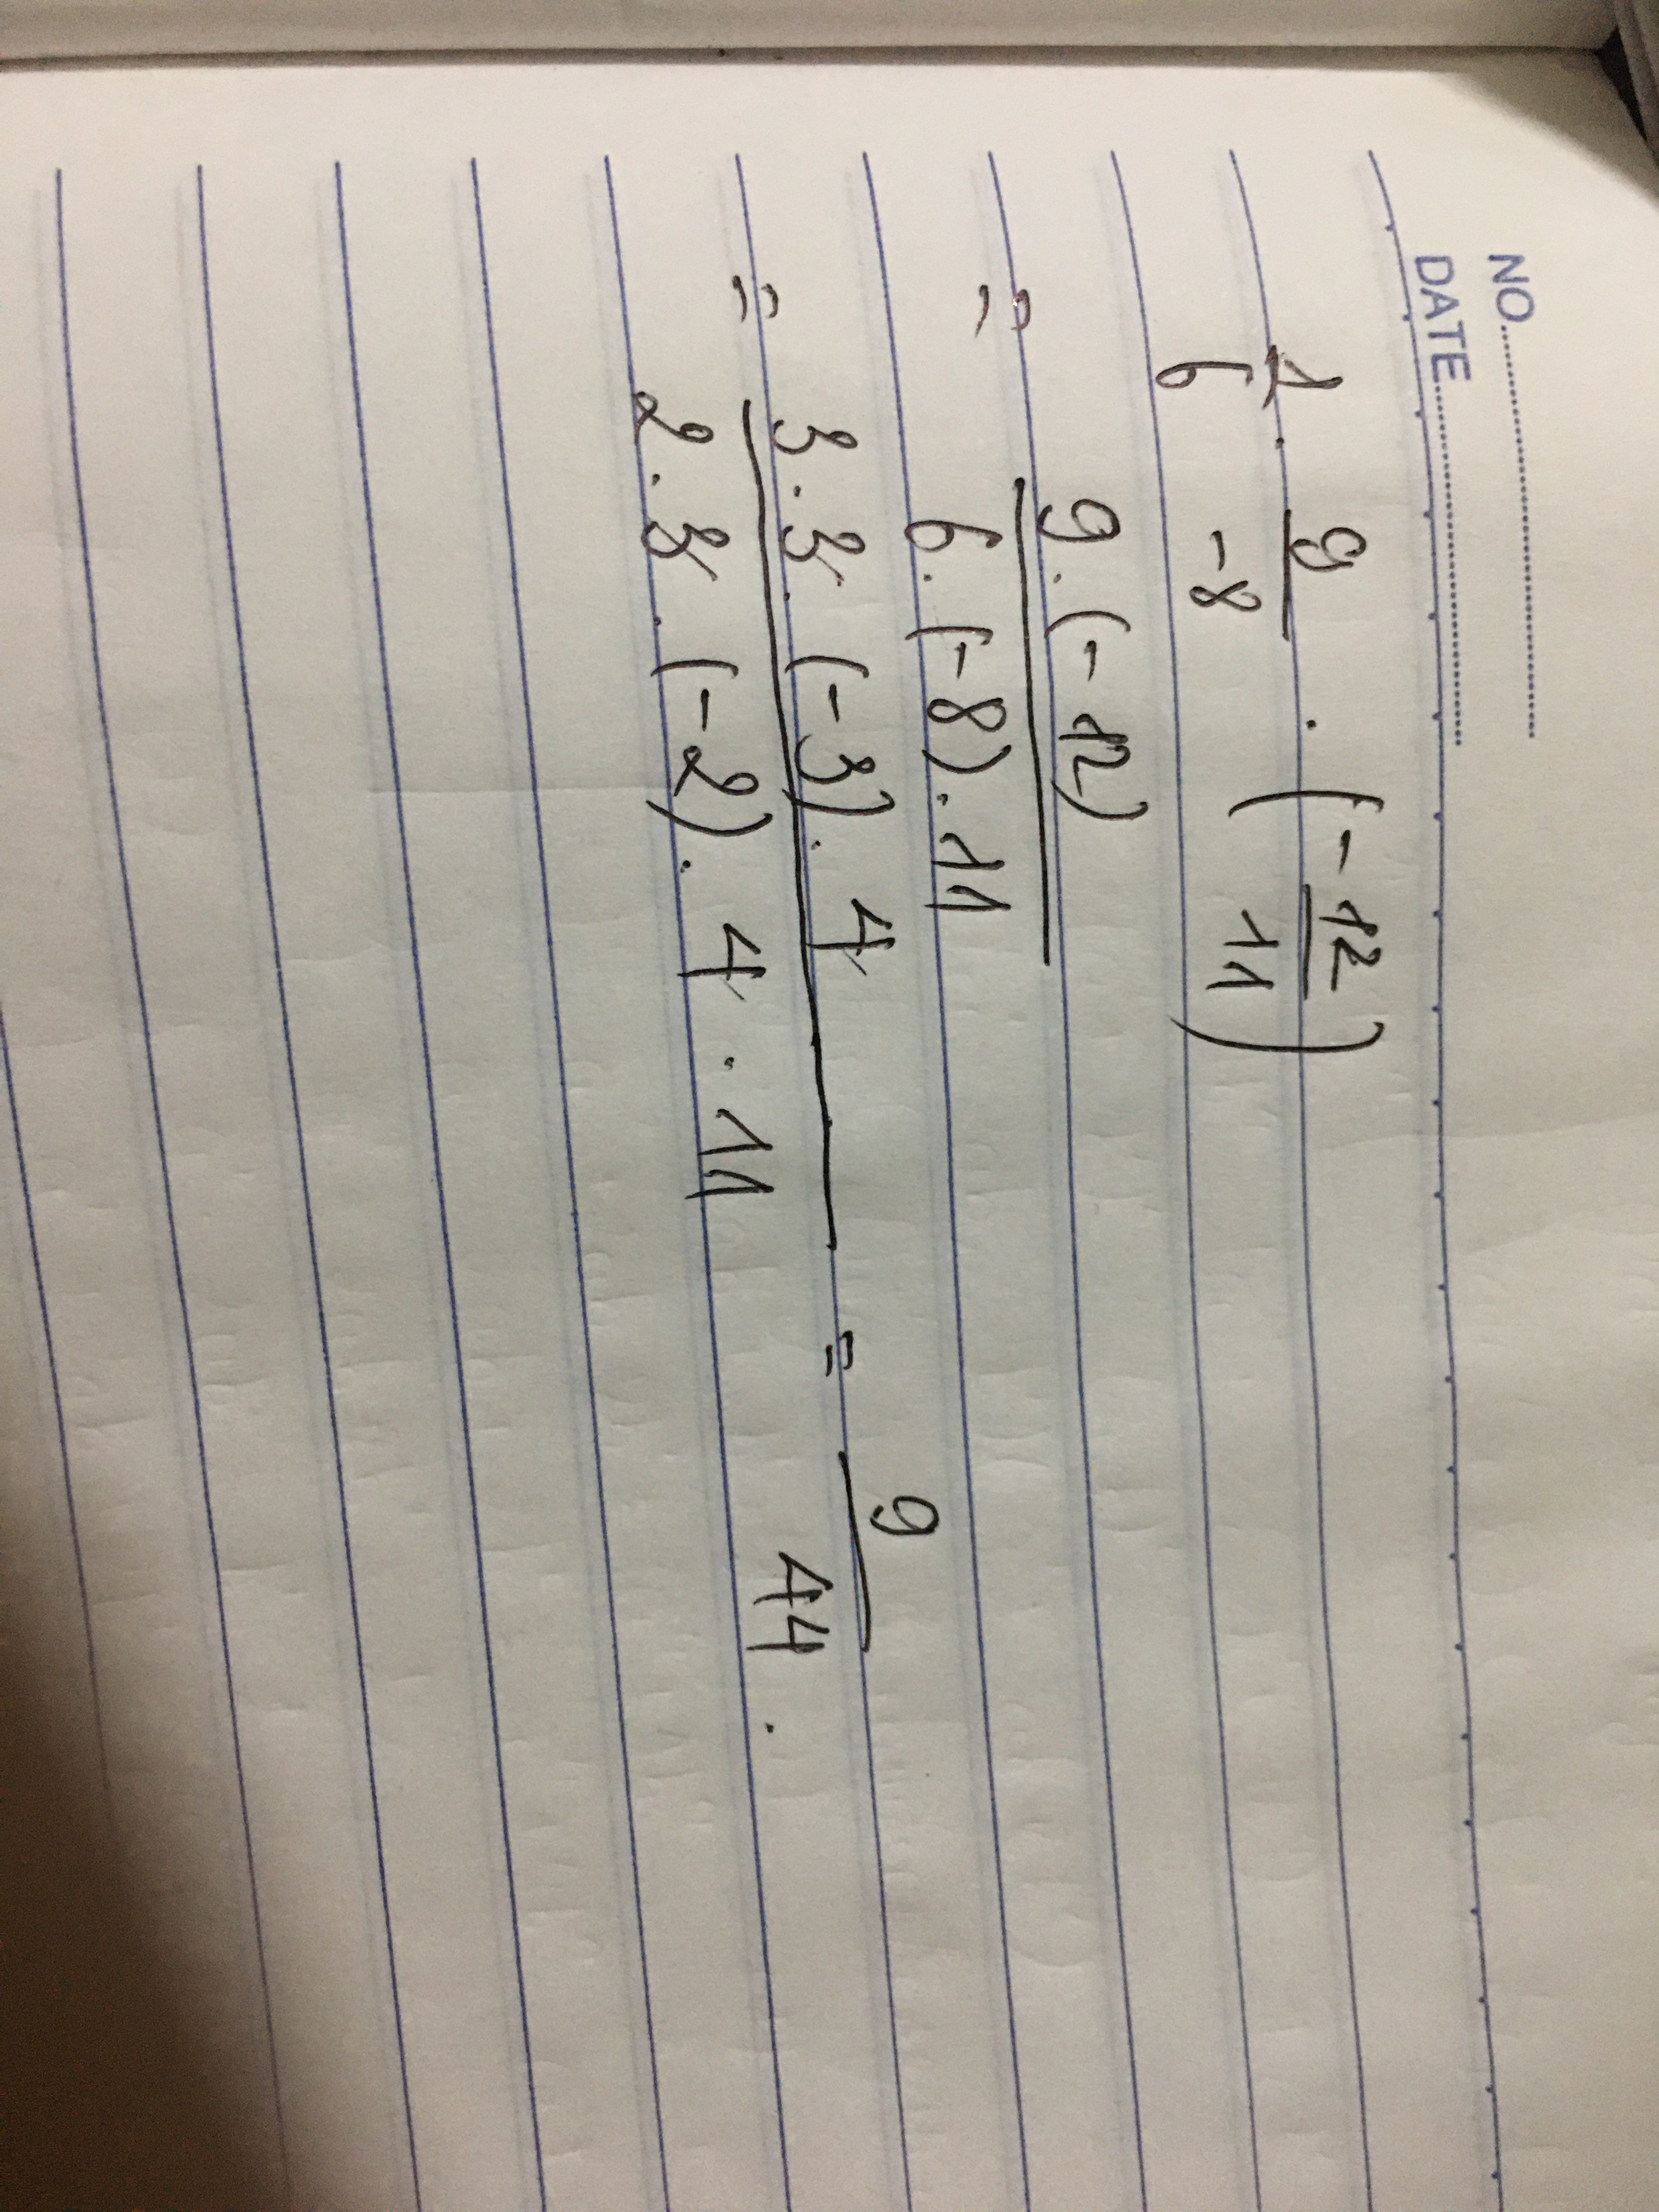 NO.
DATE
1/6 . 9/-8 . (- 12/11)
= 9 . (- 12) / 6 . (-8) . 11
= 3 . 3 . (-3) . 4 / 2 . 3 . (-2) . 4 . 11 = 9/44 .